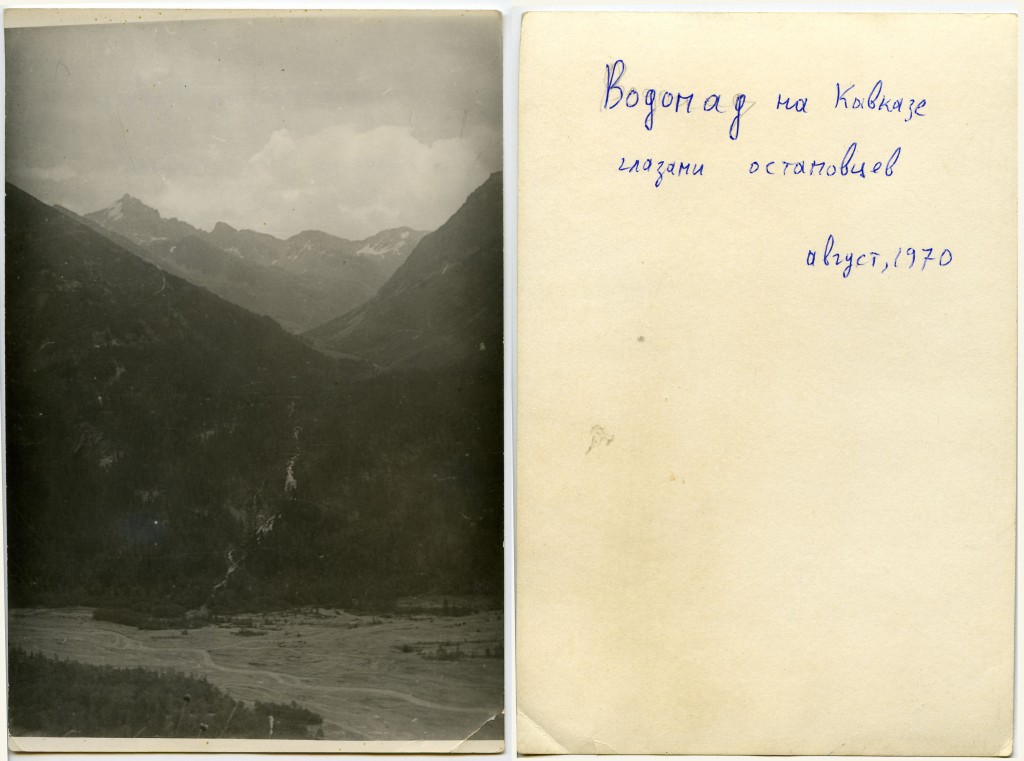 Водопад на Кавказе
глазами остановцев
август, 1970